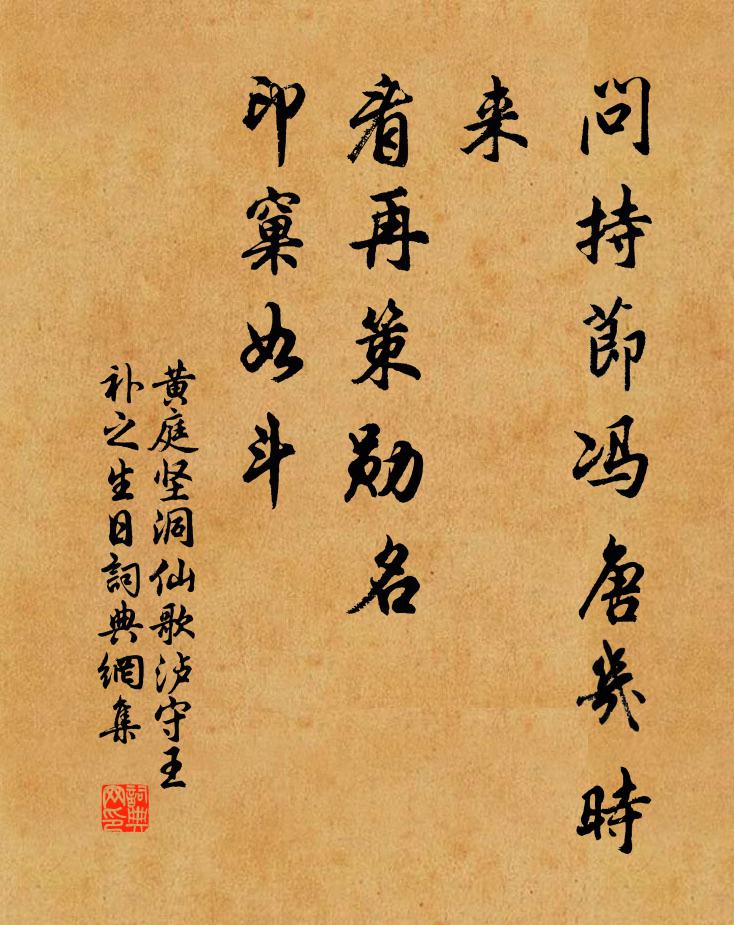 問持節冯唐幾時
来
看再策勋名
印窠如斗
黄庭坚洞仙歌泸守王
补之生日詞典網集
詞典
网印